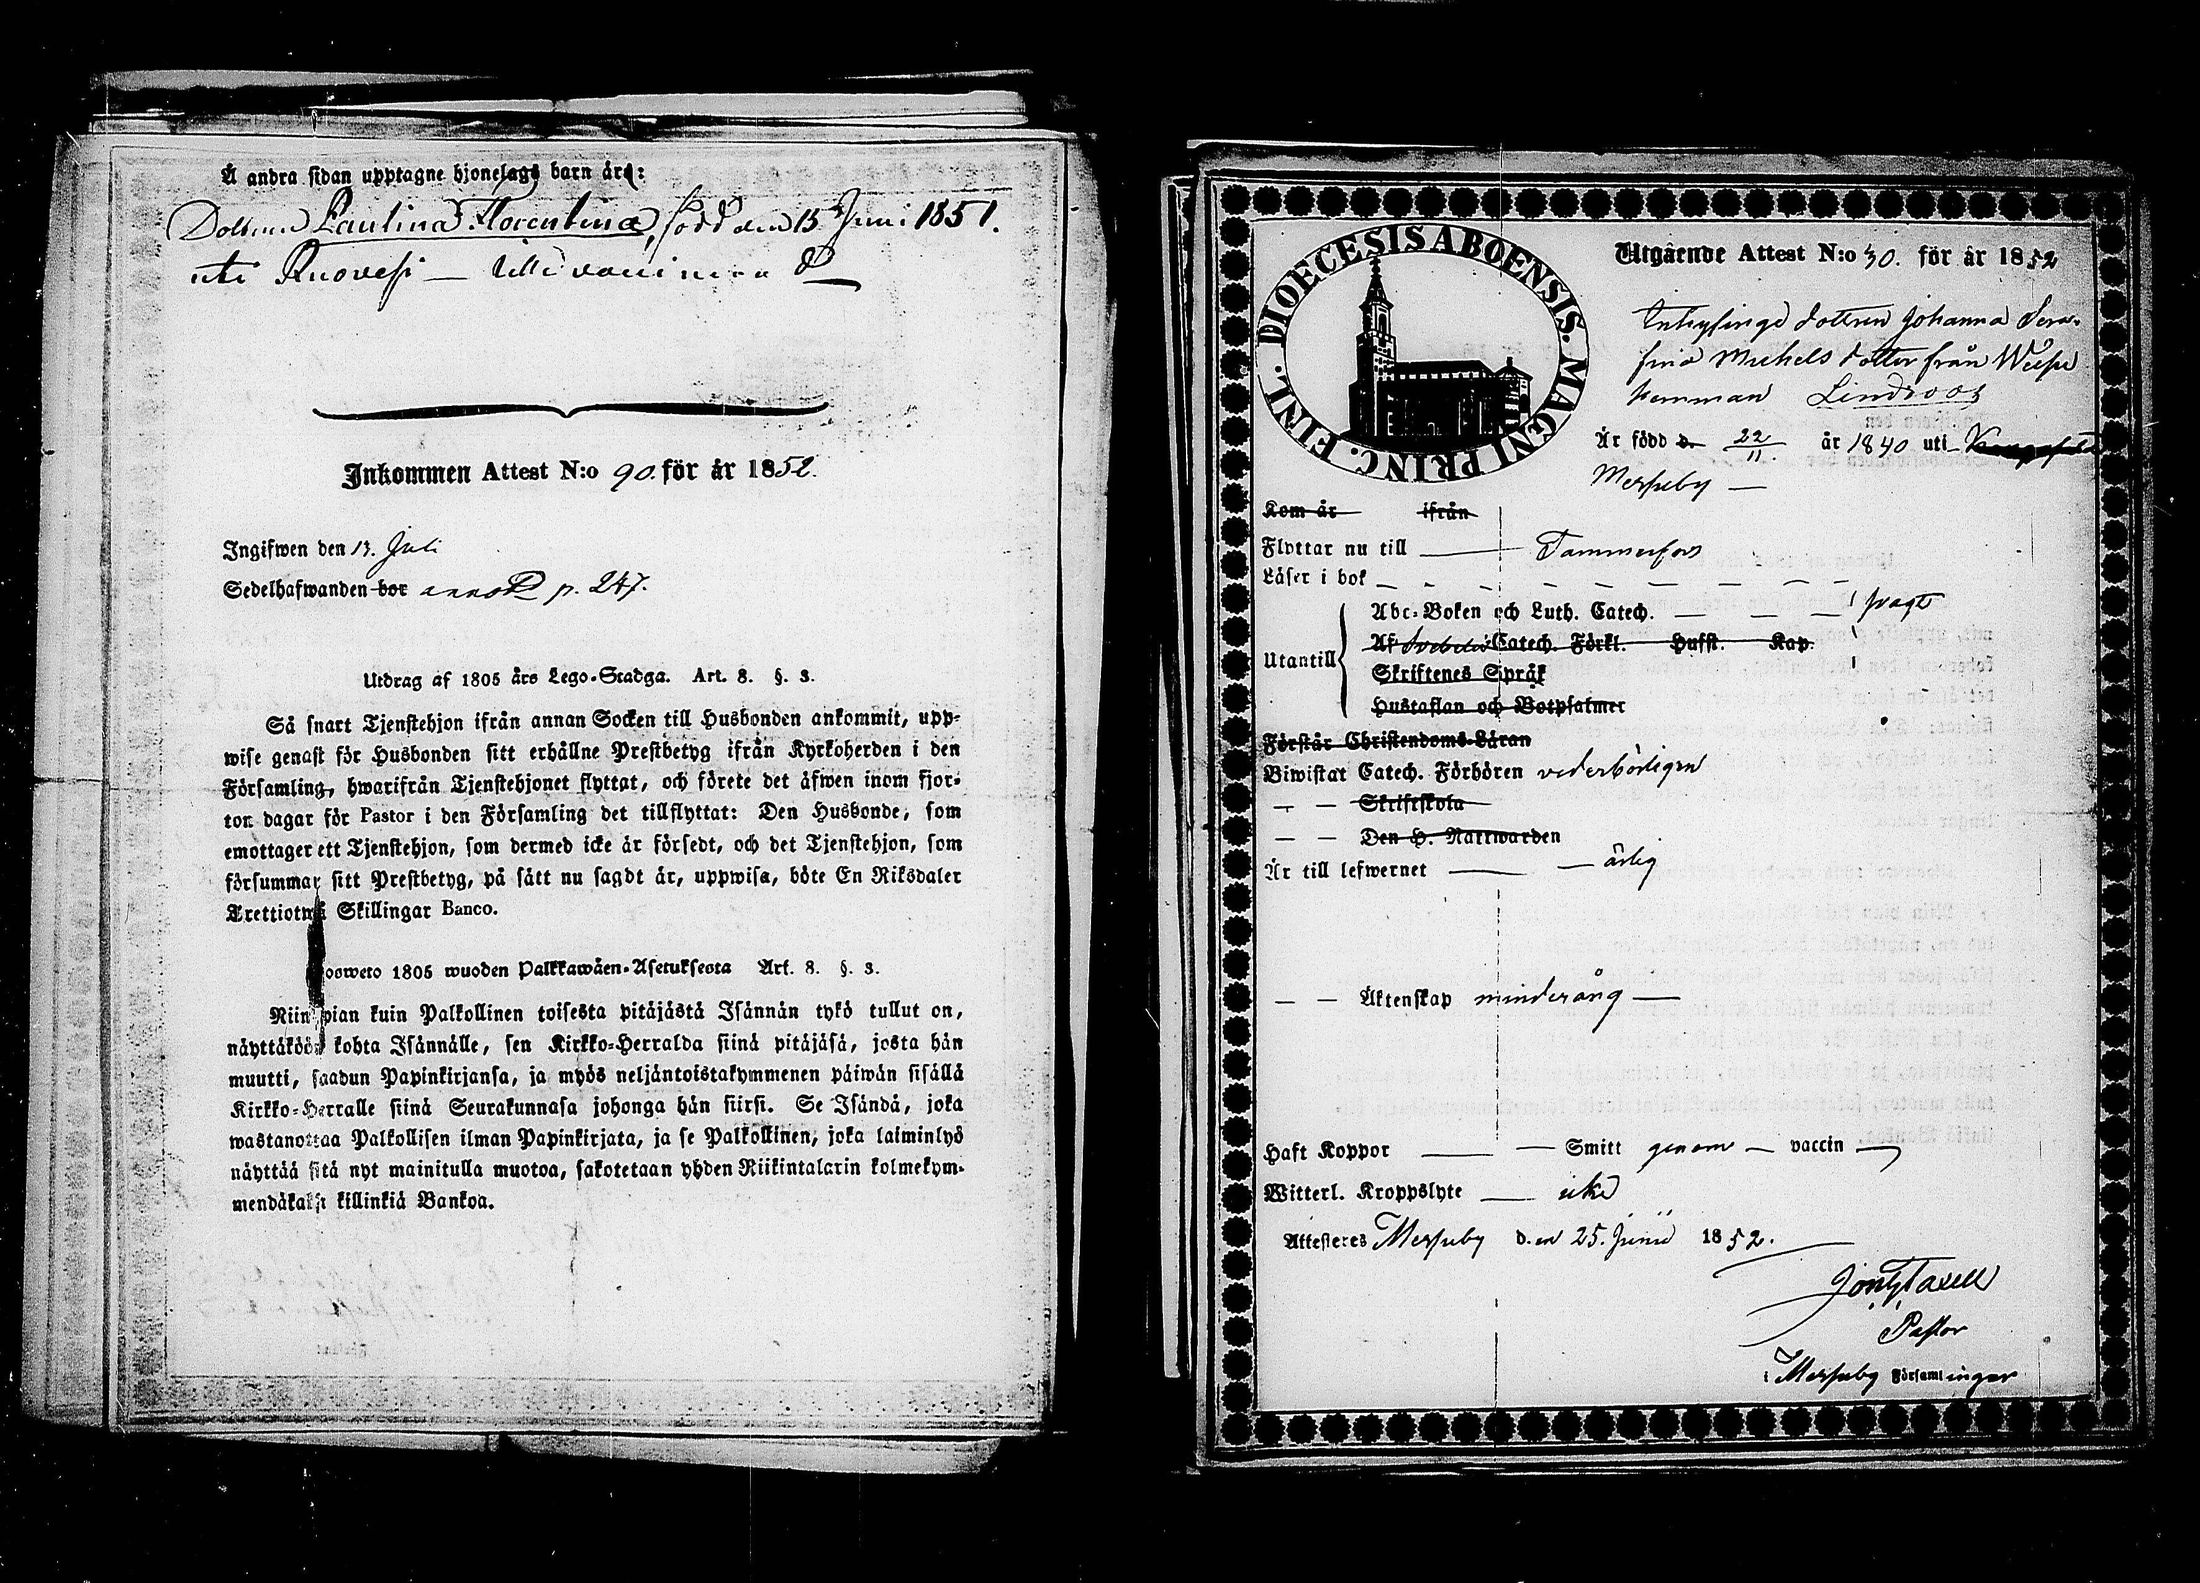 Å andra sidan upptagne hjonelags barn äro:
Dottren Paulina Florentina, född den 15 Juni 1851.
uti Ruovesi —
Inkommen Attest N:o 90. för år 1852.
Ingifwen den 13. Juli
Sedelhafwanden bor annot. p. 247.
Utdrag af 1805 års Lego-Stadga. Art. 8. §. 3.
Så snart Tjenstehjon ifrån annan Socken till Husbonden ankommit, upp-
wise genast för Husbonden sitt erhållne Prestbetyg ifrån Kyrkoherden i den
Församling, hwarifrån Tjenstehjonet flyttat, och förete det äfwen inom fjor-
ton dagar för Pastor i den Församling det tillflyttat: Den Husbonde, som
emottager ett Tjenstehjon, som dermed icke är försedt, och det Tjenstehjon, som
försummar sitt Prestbetyg, på sätt nu sagdt är, uppwisa, böte En Riksdaler
Trettiotwå Skillingar Banco.
oosweto 1805 wuoden Palkkawäen-Asetuksesta Art. 8. §. 3.
Niin pian kuin Palkollinen toisesta pitäjästä Isännän tykö tullut on,
näyttäköön kohta Isännälle, sen Kirkko-Herralda siinä pitäjäsä, josta hän
muutti, saadun Papinkirjansa, ja myös neljäntoistakymmenen päiwän sisällä
Kirkko-Herralle siinä Seurakunnasa johonga hän siirsi. Se Isändä, joka
wastanottaa Palkollisen ilman Papinkirjata, ja se Palkollinen, joka laiminlyö
näyttää sitä nyt mainitulla muotoa, sakotetaan yhden Riikintalarin kolmekym-
mendäkaksi killinkiä Bankoa.
DIOECESIS ABOENSIS. MAGNI PRINC. FINL.
Utgående Attest N:o 30. för år 1852
Inhysinge dottren Johanna Sera-
fina Michels dotter från Wiepe
hemman Lindroos
Är född d. 22/11 år 1840 uti
Messuby —
Kom år ifrån
Flyttar nu till — Tammerfors
Läser i bok — — — — — — — —
Utantill
Abc-Boken och Luth. Catech. — — — svagt
Af Svebelii Catech. Förkl. Husst. Kap.
Skriftenes Språk
Hustaflan och Botpsalmer
Förstår Christendoms-Läran
Biwistat Catech. Förhören vederbörligen
— — Skriftskola
— — Den H. Nattwarden
Är till lefwernet — — ärlig
— — Äktenskap minderårig —
Haft Koppor — — Smitt genom — vaccin —
Witterl. Kroppslyte — icke
Attesteres Messuby d. en 25. Junii 1852.
Pastor
i Messuby Församlingar